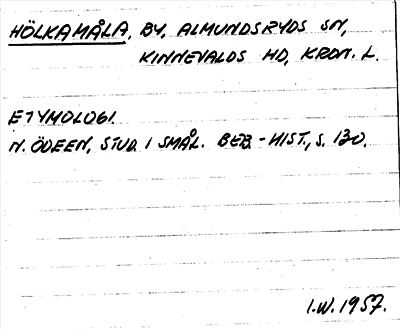 HÖLKAMÅLA, BY, ALMUNDSRYDS SN,
KINNEVALDS HD, KRON. L.
ETYMOLOGI.
N. ÖDEEN, STUD. I SMÅL. BEB.-HIST., S. 130.
I.W. 1957.